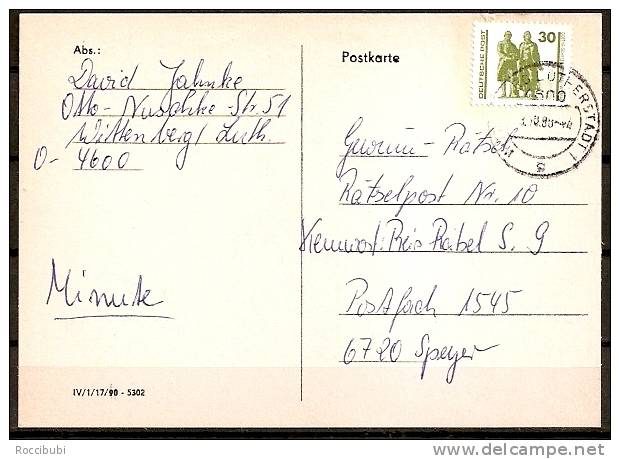 Abs.:
David Jahnke
Otto-Nuschke-Str. 51
Wittenberg/Luth.
O-4600
Minute
IV/1/17/90 - 5302
Postkarte
DEUTSCHE POST
30
LUTHERSTADT
4600
Gewinn-Rätsel
Rätselpost Nr. 10
Kennwort: Preis Rätsel S. 9
Postfach 1545
6720 Speyer
Roccibubi
delcampe.net